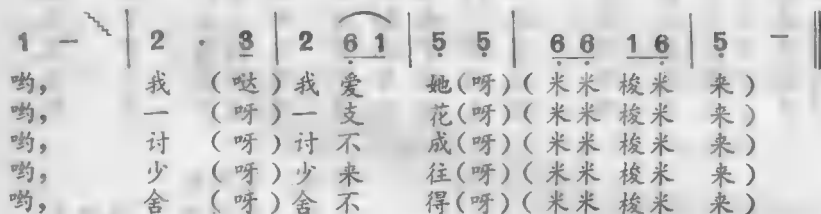 1 - | 2 · 3 | 2 6 1 | 5 5 | 6 6 1 6 | 5 - ‖
哟， 我 （哒）我 爱 她（呀）（米米 梭米 来）
哟， 一 （呀）一 支 花（呀）（米米 梭米 来）
哟， 讨 （呀）讨 不 成（呀）（米米 梭米 来）
哟， 少 （呀）少 来 往（呀）（米米 梭米 来）
哟， 舍 （呀）舍 不 得（呀）（米米 梭米 来）